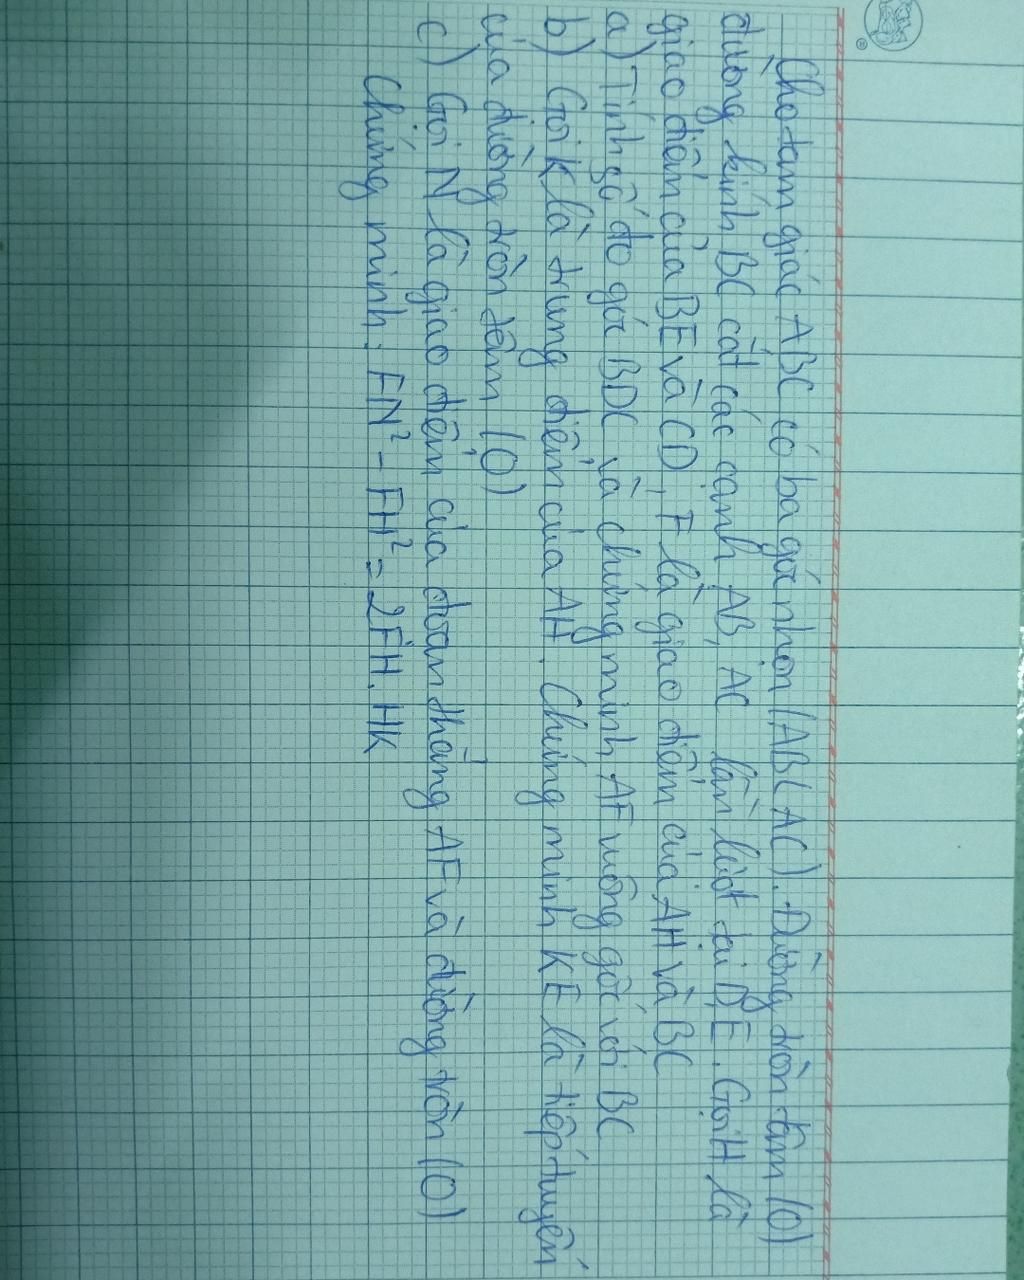 Cho tam giác ABC có ba góc nhọn (AB < AC). Đường tròn tâm (O)
đường kính BC cắt các cạnh AB, AC lần lượt tại D, E. Gọi H là
giao điểm của BE và CD, F là giao điểm của AH và BC
a) Tính số đo góc BDC và chứng minh AF vuông góc với BC
b) Gọi K là trung điểm của AH. Chứng minh KE là tiếp tuyến
của đường tròn tâm (O)
c) Gọi N là giao điểm của đoạn thẳng AF và đường tròn (O)
Chứng minh: FN² - FH² = 2FH.HK